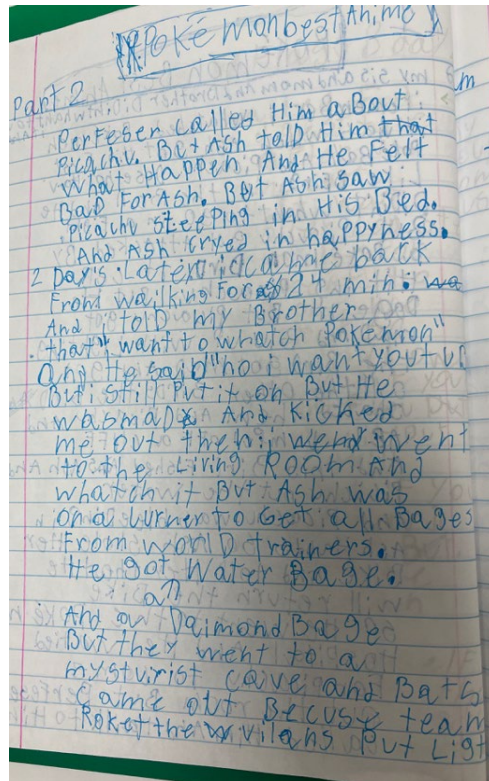 Pokémon best Anime
Part 2
Perfeser called Him a Bout
Picachu. But Ash told Him that
what Happen And He Felt
Bad For Ash. But Ash saw
Picachu sleeping in His Bed.
And Ash cryed in happyness.
2 Days Later i came back
From walking For 24 min.
And i told my Brother
that "i want to whatch Pokémon"
And He said "no i want youtub
But i still Put it on But He
was mad And Kicked
me out then i went
to the Living Room And
whatch it But Ash was
on a Jurney to Get all Bages
From world trainers.
He got Water Bage.
an
And a Daimond Bage
But they went to a
mysturist cave and Bats
Came out Becuse team
Roket the vilans Put Ligt